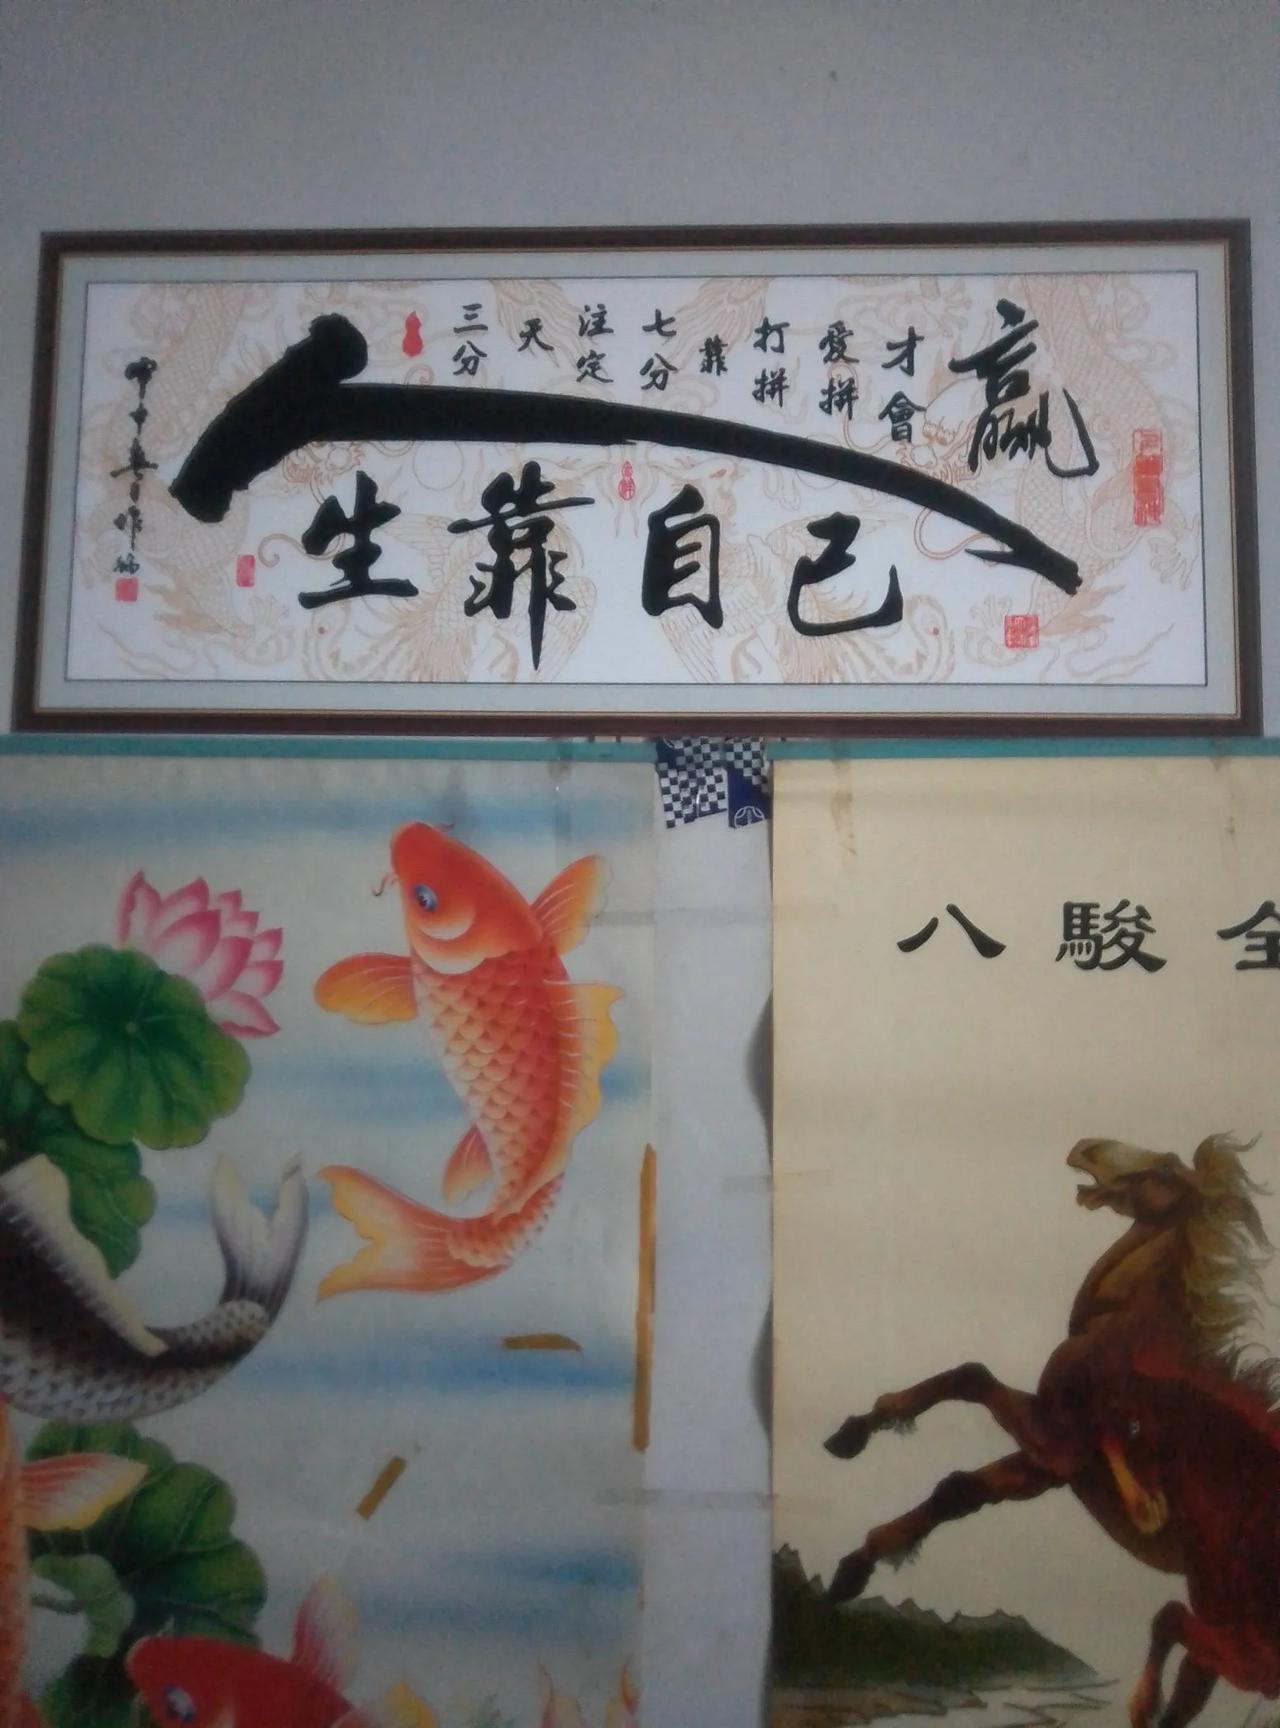 三分天注定七分靠打拼愛拼才會贏
人生靠自己
八駿全